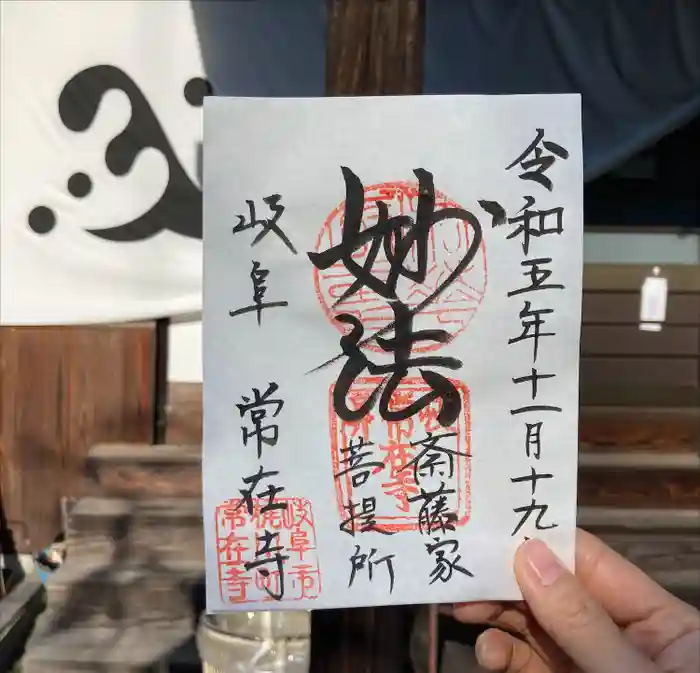 令和五年十一月十九
妙法
斎藤家
菩提所
岐阜 常在寺
常在寺
岐阜市
梶川町
常在寺